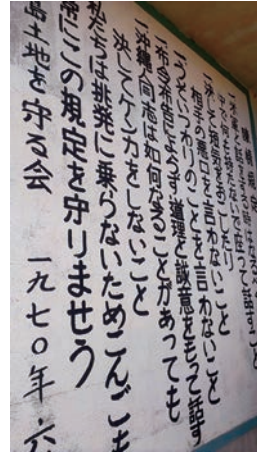 陳情規定
坐って話すこと
一決して短気をおこしたり
相手の悪口を言わないこと
一うそいつわりのことを言わないこと
一布令布告によらず道理と誠意をもって話す
一沖縄人同志は如何なることがあっても
決してケンカをしないこと
私たちは挑発に乗らないためこんごも
常にこの規定を守りませう
島土地を守る会 一九七〇年.六